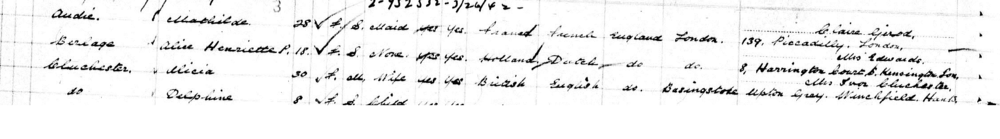 3 2-952532-3/26/42-
Audie. Mathilde 28 ✓ f. S. Maid yes Yes. France French England London. Claire Girod, 139, Piccadilly. London,
Berlage Alice Henriette P. 18. ✓ f. S. None. yes Yes. Holland Dutch do do. Mrs Edwards. 8, Harrington Court, S. Kensington
Chichester, Alicia 30 f. M. Wife yes Yes British English do. Basingstoke Mrs Chichester, Upton Grey. Winchfield. Hants.
do Delphine 8 ✓ f. S. Child